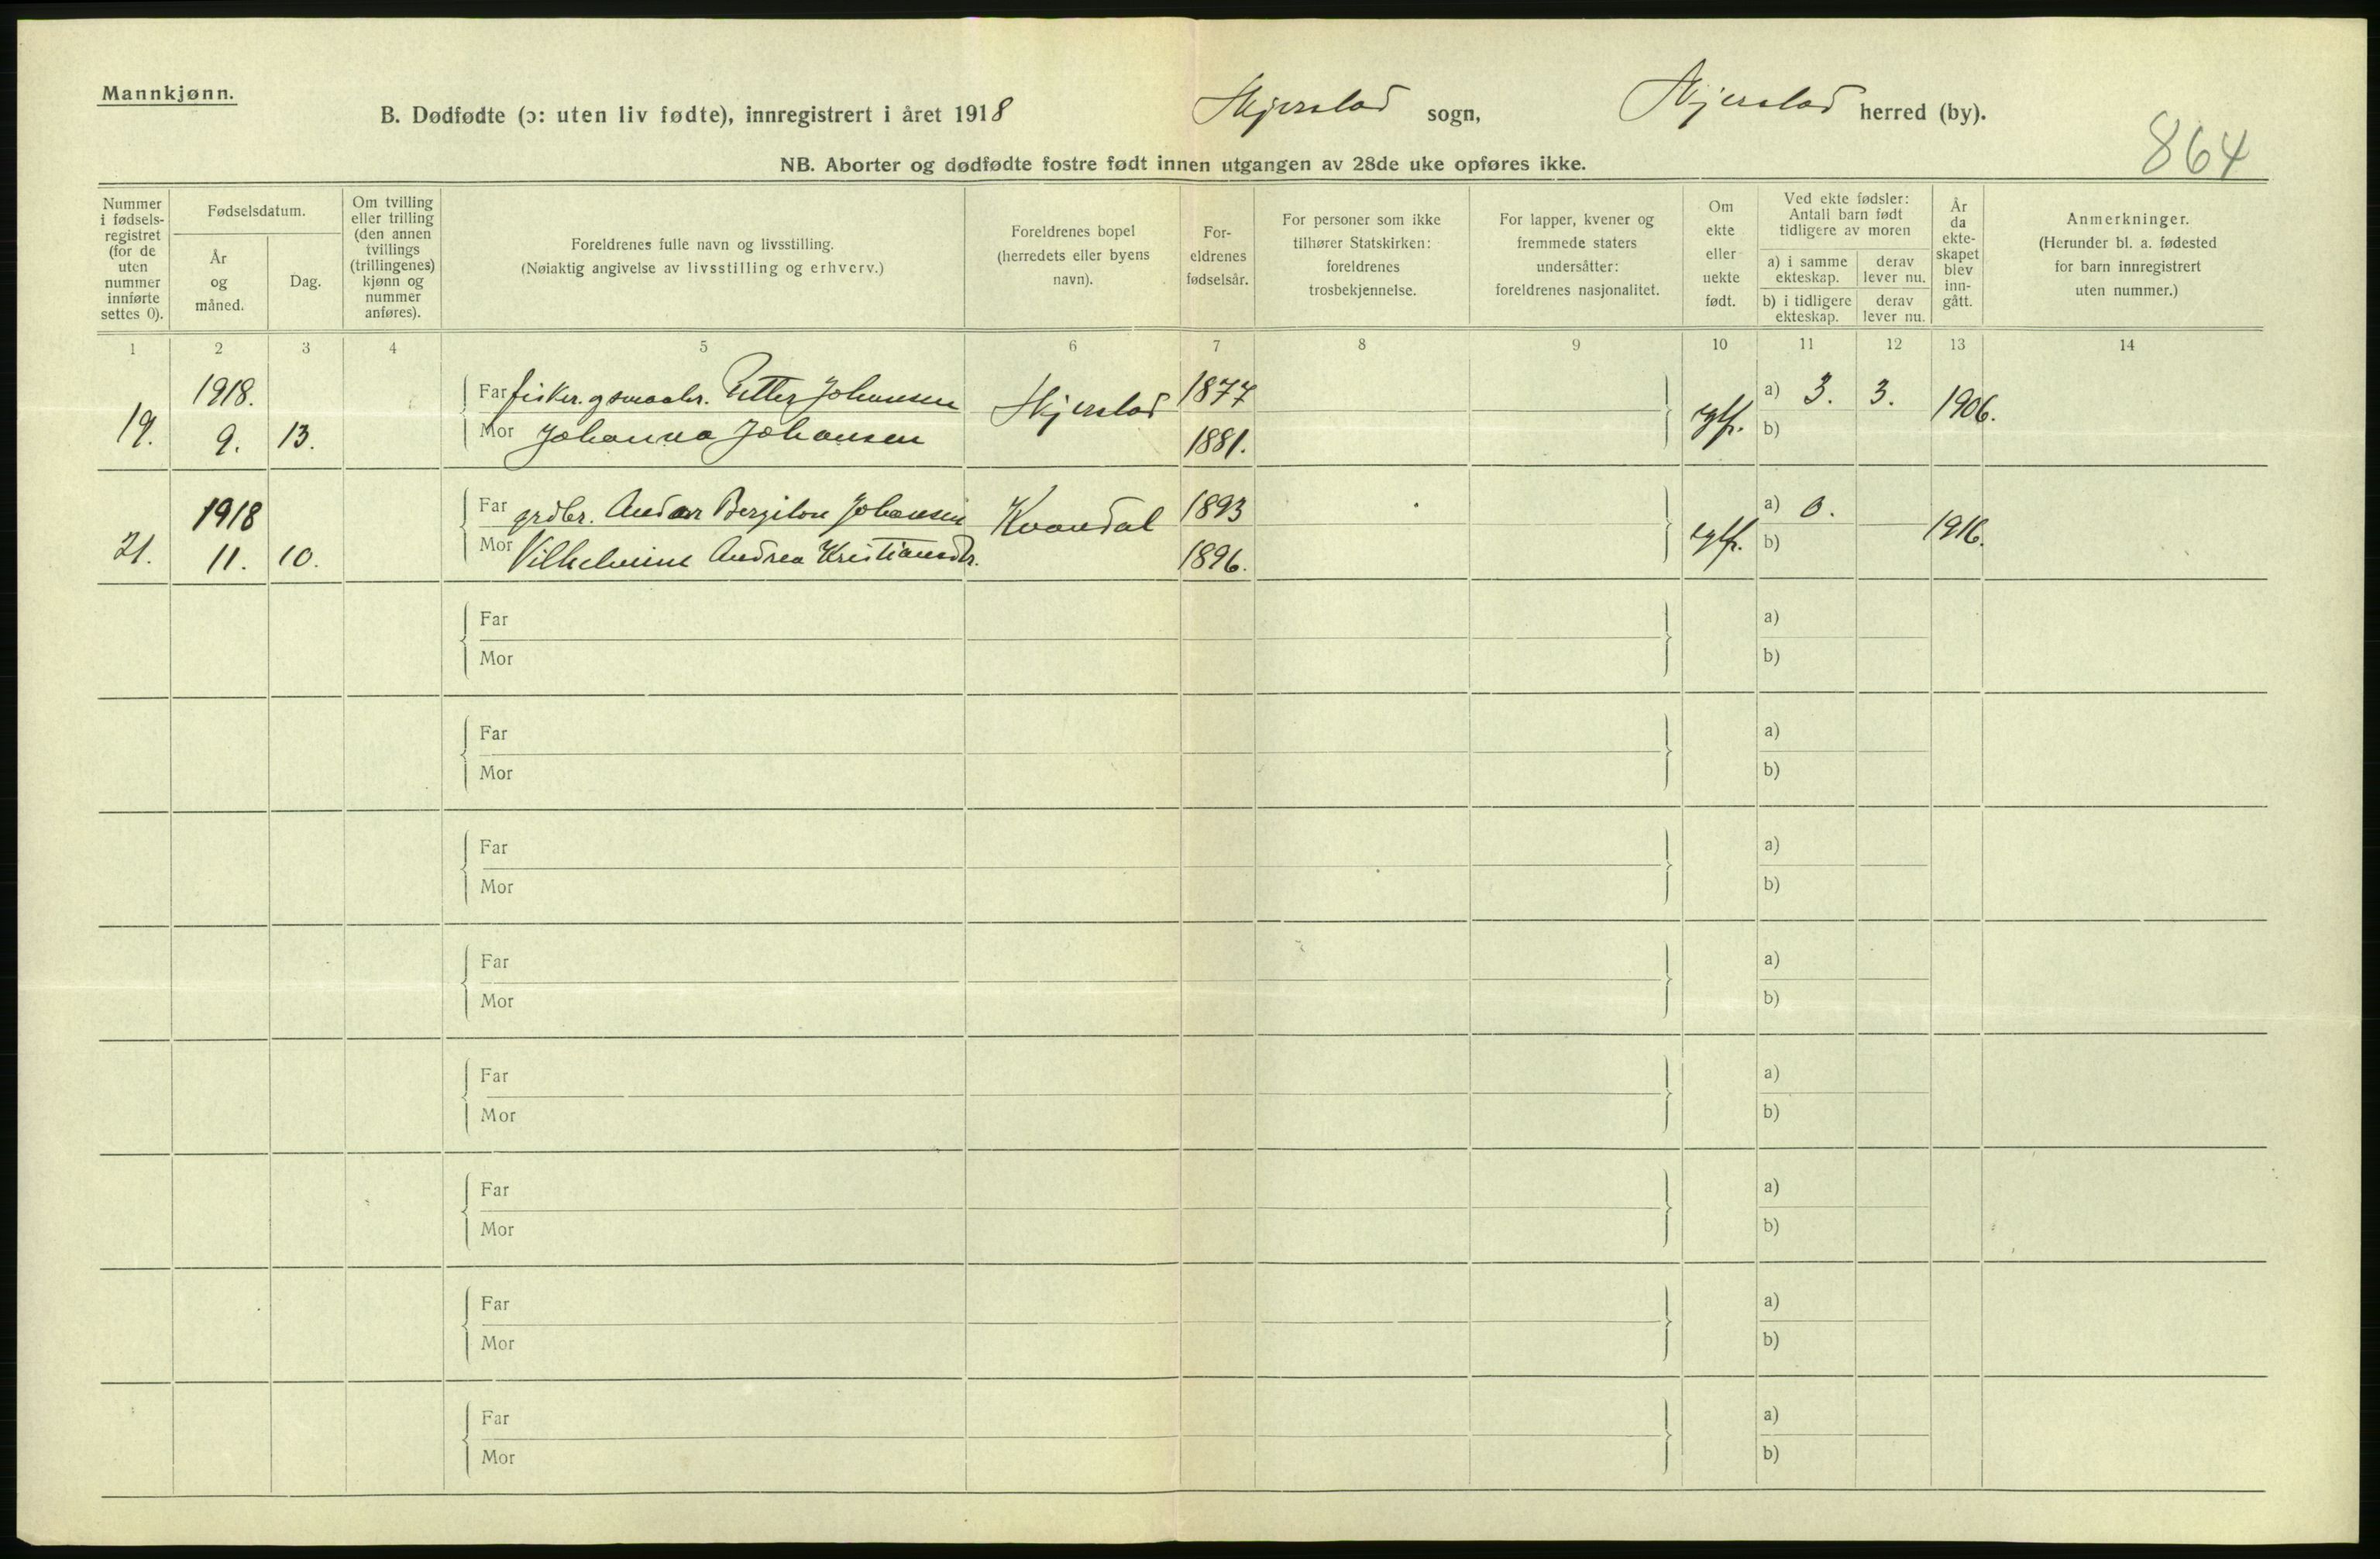 Mannkjønn.
B. Dødfødte (ɔ: uten liv fødte), innregistrert i året 1918 Skjerstad sogn, Skjerstad herred (by).
864
NB. Aborter og dødfødte fostre født innen utgangen av 28de uke opføres ikke.
Nummer i fødsels-registret (for de uten nummer innførte settes 0).
Fødselsdatum.
År og måned.
Dag.
Om tvilling eller trilling (den annen tvillings (trillingenes) kjønn og nummer anføres).
Foreldrenes fulle navn og livsstilling.
(Nøiaktig angivelse av livsstilling og erhverv.)
Foreldrenes bopel (herredets eller byens navn).
For-eldrenes fødselsår.
For personer som ikke tilhører Statskirken: foreldrenes trosbekjennelse.
For lapper, kvener og fremmede staters undersåtter: foreldrenes nasjonalitet.
Om ekte eller uekte født.
Ved ekte fødsler: Antall barn født tidligere av moren
a) i samme ekteskap. derav lever nu.
b) i tidligere ekteskap. derav lever nu.
År da ekte-skapet blev inn-gått.
Anmerkninger.
(Herunder bl. a. fødested for barn innregistrert uten nummer.)
1 2 3 4 5 6 7 8 9 10 11 12 13 14
19. 1918. 9. 13. Far fisker. g smaabr. Petter Johansen Skjerstad 1877 egtf. a) 3. 3. 1906.
Mor Johanna Johansen 1881. b)
21. 1918 11. 10. Far grdbr. Bergiton Johansen Kvandal 1893 egtf. a) 0. — 1916.
Mor Vilhelmine Andrea Kristiansdtr. 1896. b)
Far a)
Mor b)
Far a)
Mor b)
Far a)
Mor b)
Far a)
Mor b)
Far a)
Mor b)
Far a)
Mor b)
Far a)
Mor b)
Far a)
Mor b)